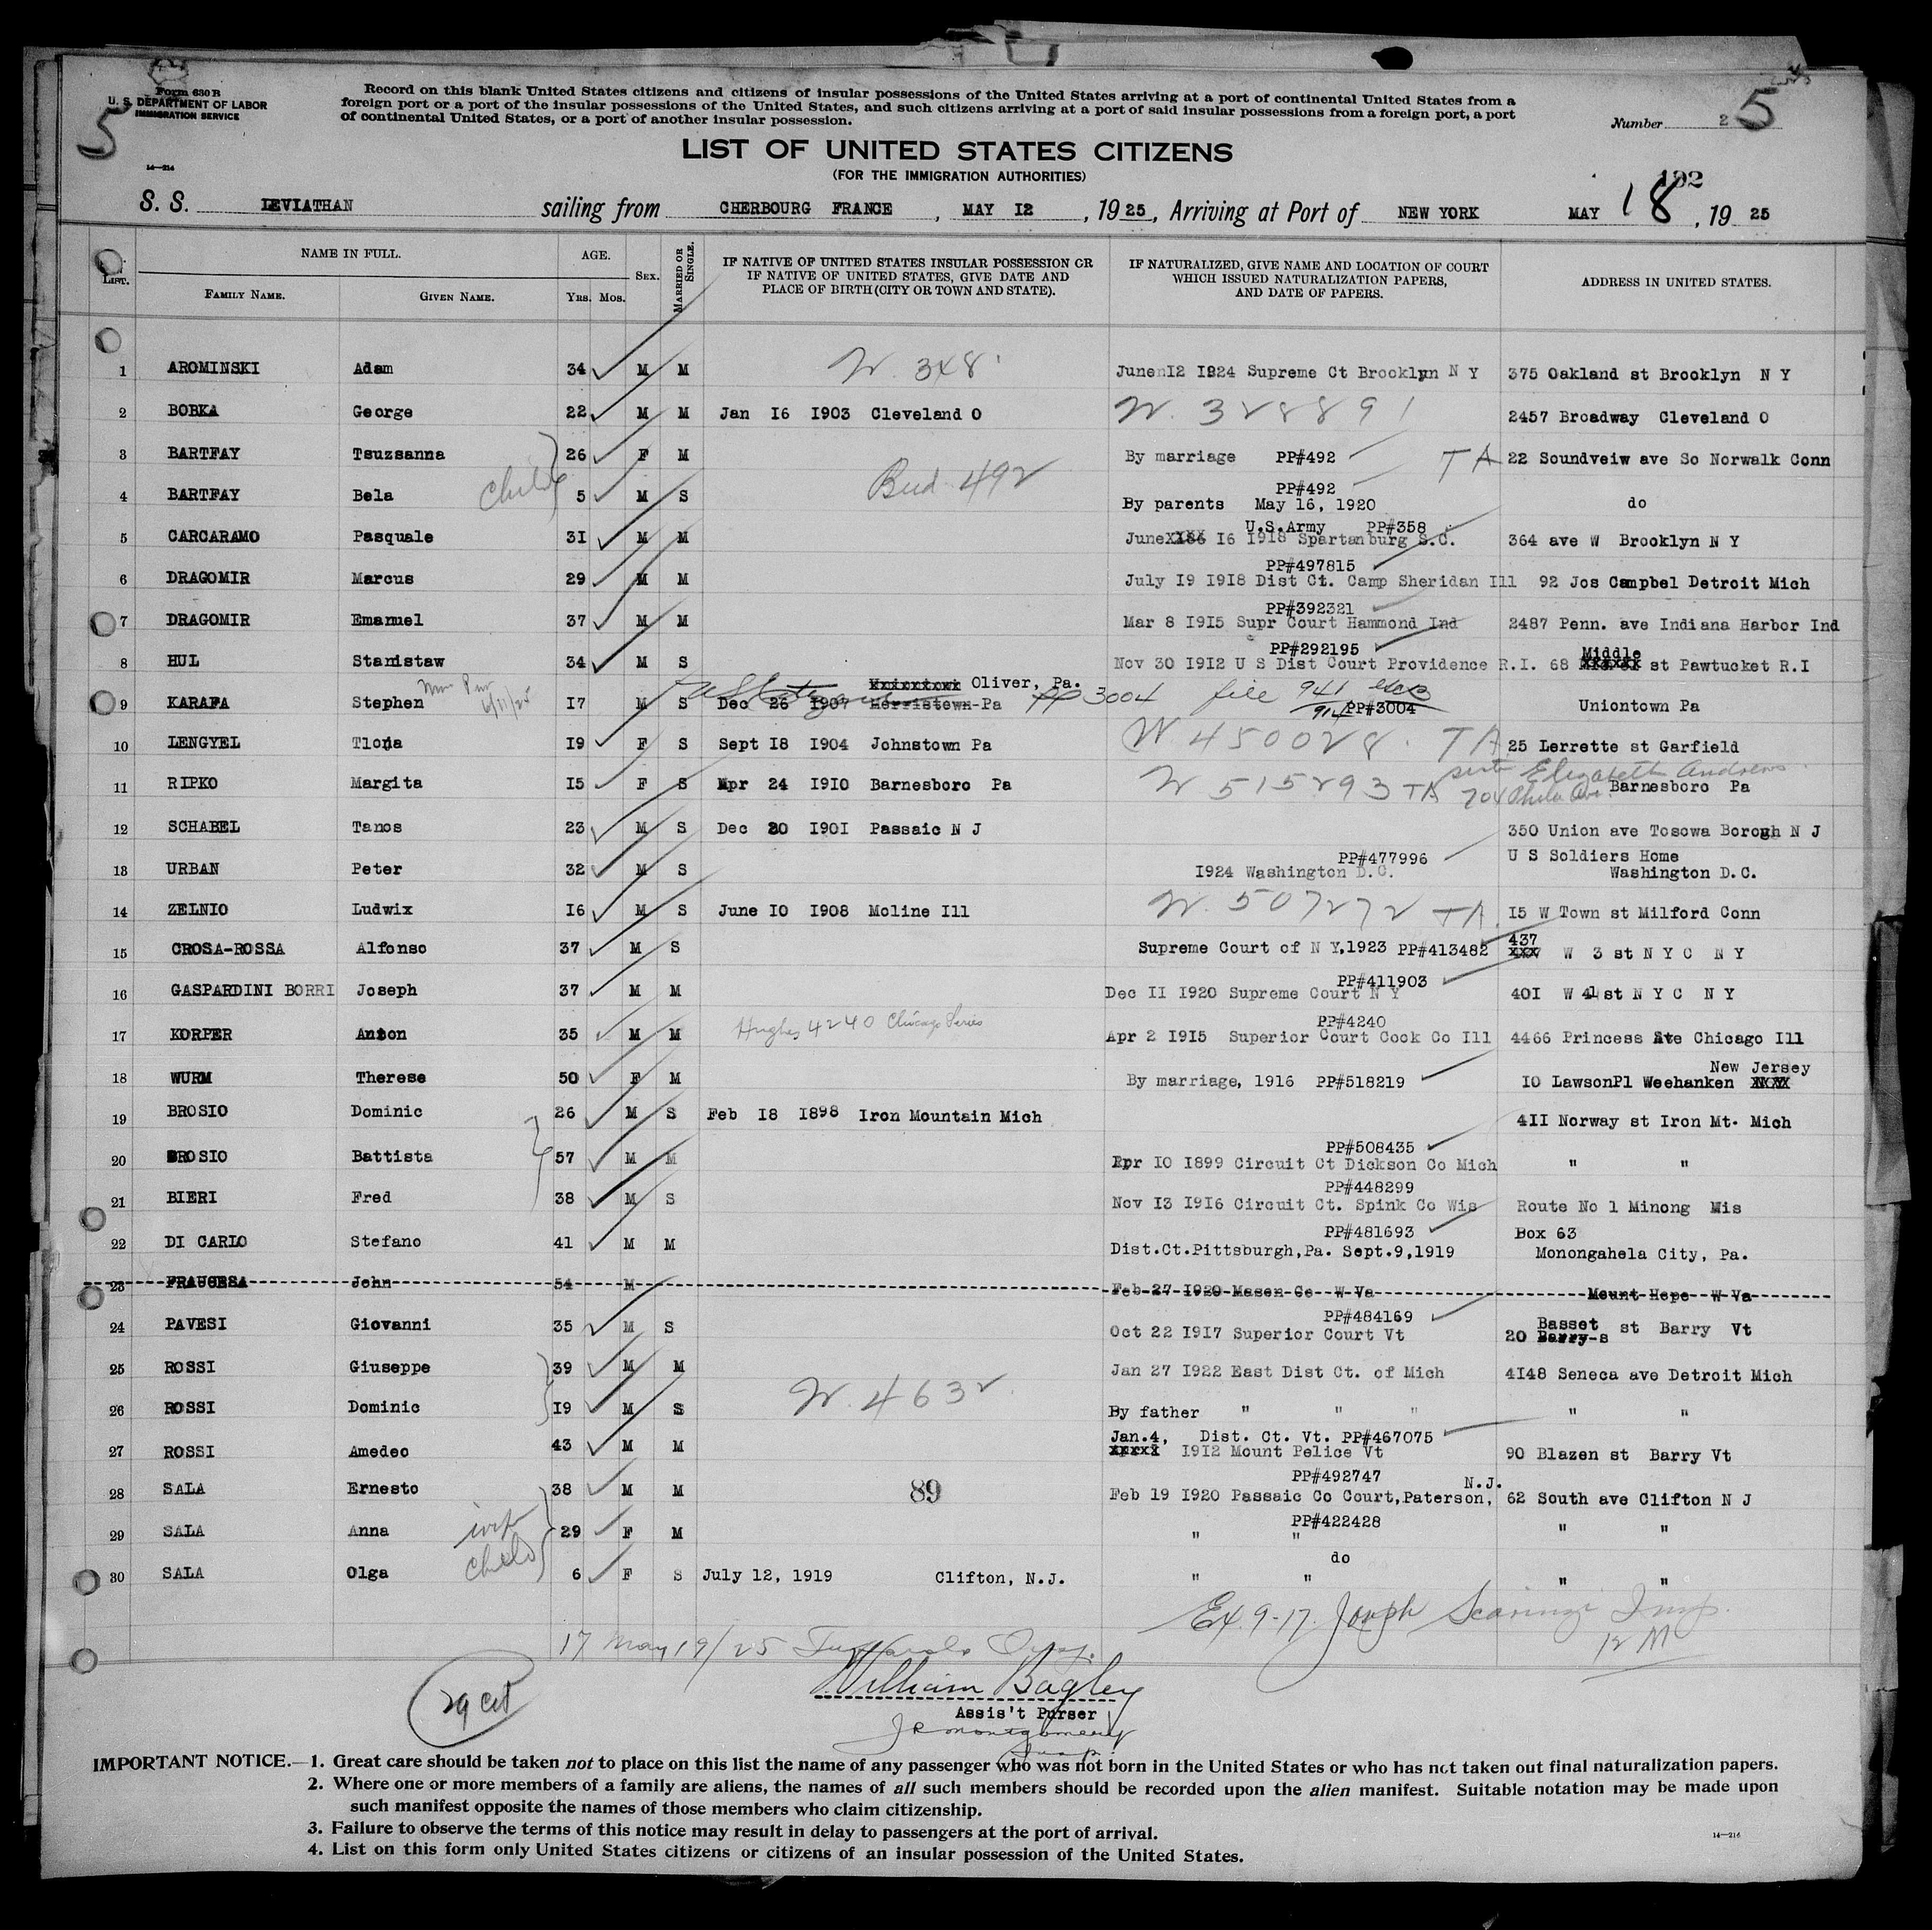 Form 630 B
U. S. DEPARTMENT OF LABOR
IMMIGRATION SERVICE
5
14—214
Record on this blank United States citizens and citizens of insular possessions of the United States arriving at a port of continental United States from a
foreign port or a port of the insular possessions of the United States, and such citizens arriving at a port of said insular possessions from a foreign port, a port
of continental United States, or a port of another insular possession.
Number 2 5
LIST OF UNITED STATES CITIZENS
(FOR THE IMMIGRATION AUTHORITIES)
192
S. S. LEVIATHAN sailing from CHERBOURG FRANCE , MAY 12 , 1925, Arriving at Port of NEW YORK MAY 18 , 19 25
LIST. NAME IN FULL. AGE. SEX. MARRIED OR SINGLE. IF NATIVE OF UNITED STATES INSULAR POSSESSION OR IF NATIVE OF UNITED STATES, GIVE DATE AND PLACE OF BIRTH (CITY OR TOWN AND STATE). IF NATURALIZED, GIVE NAME AND LOCATION OF COURT WHICH ISSUED NATURALIZATION PAPERS, AND DATE OF PAPERS. ADDRESS IN UNITED STATES.
FAMILY NAME. GIVEN NAME. YRS. MOS.
1 AROMINSKI Adam 34 M M N. 348 June 12 1924 Supreme Ct Brooklyn N Y 375 Oakland st Brooklyn N Y
2 BOBKA George 22 M M Jan 16 1903 Cleveland O N. 328891 2457 Broadway Cleveland O
3 BARTFAY Tsuzsanna 26 F M By marriage PP#492 TA 22 Soundveiw ave So Norwalk Conn
child Bud 492 PP#492
4 BARTFAY Bela 5 M S By parents May 16, 1920 do
U.S.Army PP#358
5 CARCARAMO Pasquale 31 M M June 16 1918 Spartanburg S.C. 364 ave W Brooklyn N Y
PP#497815
6 DRAGOMIR Marcus 29 M M July 19 1918 Dist Ct. Camp Sheridan Ill 92 Jos Campbel Detroit Mich
PP#392321
7 DRAGOMIR Emanuel 37 M M Mar 8 1915 Supr Court Hammond Ind 2487 Penn. ave Indiana Harbor Ind
PP#292195 Middle
8 HUL Stanistaw 34 M S Nov 30 1912 U S Dist Court Providence R.I. 68 st Pawtucket R.I
Oliver, Pa. PP 3004 file 941
9 KARAFA Stephen 6/11/25 17 M S Dec 26 1907 Morristown Pa 914 PP#3004 Uniontown Pa
10 LENGYEL Tlona 19 F S Sept 18 1904 Johnstown Pa N. 450028. TA 25 Lerrette st Garfield
Elizabeth Andrews
11 RIPKO Margita 15 F S Apr 24 1910 Barnesboro Pa N 515293 TA 704 Phila Ave. Barnesboro Pa
12 SCHABEL Tanos 23 M S Dec 20 1901 Passaic N J 350 Union ave Tosowa Borough N J
PP#477996 U S Soldiers Home
13 URBAN Peter 32 M S 1924 Washington D.C. Washington D.C.
14 ZELNIO Ludwix 16 M S June 10 1908 Moline Ill N. 507272 TA 15 W Town st Milford Conn
437
15 CROSA-ROSSA Alfonso 37 M S Supreme Court of N Y,1923 PP#413482 W 3 st N Y C N Y
PP#411903
16 GASPARDINI BORRI Joseph 37 M M Dec 11 1920 Supreme Court N Y 401 W 41 st N Y C N Y
Hughes 4240 Chicago Series PP#4240
17 KORPER Anton 35 M M Apr 2 1915 Superior Court Cook Co Ill 4466 Princess Ave Chicago Ill
New Jersey
18 WURM Therese 50 F M By marriage, 1916 PP#518219 10 LawsonPl Weehanken
19 BROSIO Dominic 26 M S Feb 18 1898 Iron Mountain Mich 411 Norway st Iron Mt. Mich
PP#508435
20 BROSIO Battista 57 M M Apr 10 1899 Circuit Ct Dickson Co Mich " "
PP#448299
21 BIERI Fred 38 M S Nov 13 1916 Circuit Ct. Spink Co Wis Route No 1 Minong Wis
PP#481693 Box 63
22 DI CARLO Stefano 41 M M Dist.Ct.Pittsburgh,Pa. Sept.9,1919 Monongahela City, Pa.
23 FRAUGESA John 54 M Feb 27 1920 Mason Co W Va Mount Hope W Va
PP#484169 Basset
24 PAVESI Giovanni 35 M S Oct 22 1917 Superior Court Vt 20 Barry-s st Barry Vt
25 ROSSI Giuseppe 39 M M Jan 27 1922 East Dist Ct. of Mich 4148 Seneca ave Detroit Mich
N. 4632
26 ROSSI Dominic 19 M S By father " " " " "
Jan.4, Dist. Ct. Vt. PP#467075
27 ROSSI Amedeo 43 M M 1912 Mount Pelice Vt 90 Blazen st Barry Vt
PP#492747 N.J.
28 SALA Ernesto 38 M M 89 Feb 19 1920 Passaic Co Court,Paterson, 62 South ave Clifton N J
wife PP#422428
29 SALA Anna 29 F M " " " "
child do
30 SALA Olga 6 F S July 12, 1919 Clifton, N.J. " " " "
Ex. 9-17. Joseph Insp.
17 May 19/25 12 M
29 cit
William Bagley
Assis't Purser
J R Montgomery
IMPORTANT NOTICE.—1. Great care should be taken not to place on this list the name of any passenger who was not born in the United States or who has not taken out final naturalization papers.
2. Where one or more members of a family are aliens, the names of all such members should be recorded upon the alien manifest. Suitable notation may be made upon
such manifest opposite the names of those members who claim citizenship.
3. Failure to observe the terms of this notice may result in delay to passengers at the port of arrival.
4. List on this form only United States citizens or citizens of an insular possession of the United States.
14—216